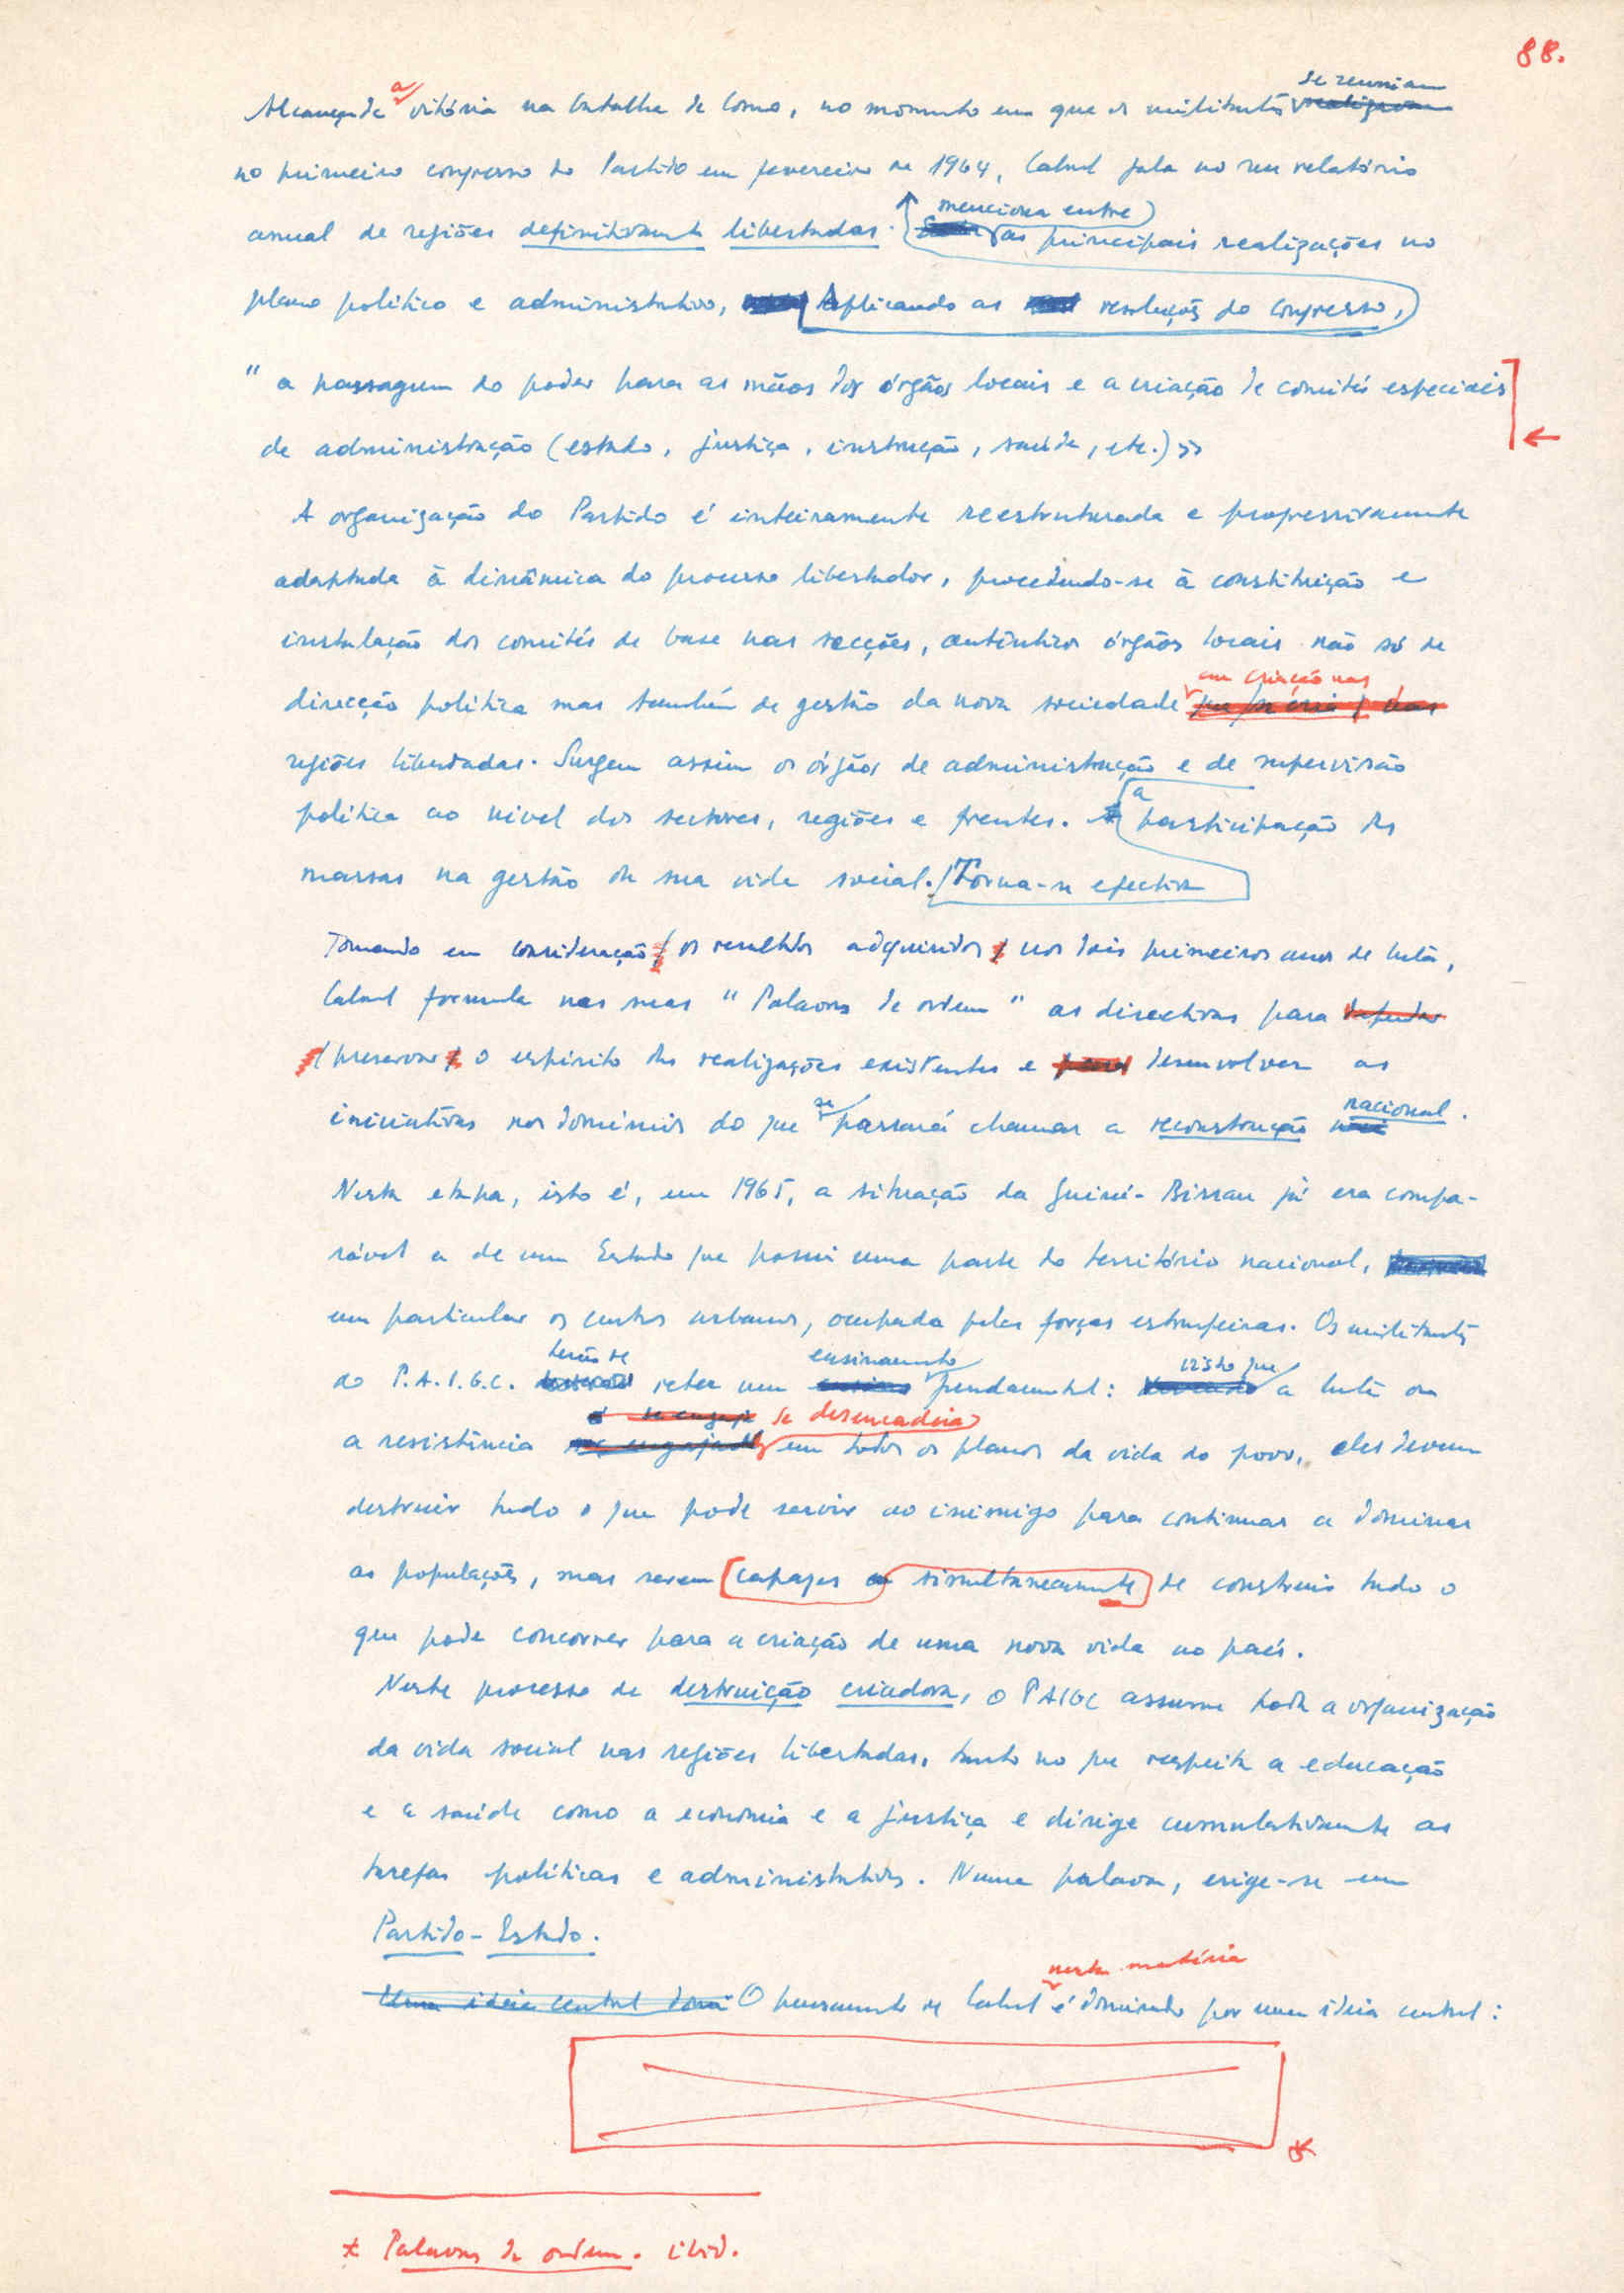 88.
Alcançada a vitória na batalha de Como, no momento em que os militantes se reuniam
no primeiro congresso do Partido em fevereiro de 1964, Cabral fala no seu relatório
anual de regiões definitivamente libertadas. menciona entre as principais realizações no
plano político e administrativo, Aplicando as resoluções do congresso,
" a passagem do poder para as mãos dos órgãos locais e a criação de comités especiais
de administração (estado, justiça, instrução, saúde, etc.) »
A organização do Partido é inteiramente reestruturada e progressivamente
adaptada à dinâmica do processo libertador, procedendo-se à constituição e
instalação dos comités de base nas secções, autênticos órgãos locais não só de
direcção política mas também de gestão da nova sociedade em criação nas
regiões libertadas. Surgem assim os órgãos de administração e de supervisão
política ao nível dos sectores, regiões e frentes. a participação das
massas na gestão da sua vida social. Torna-se efectiva
Tomando em consideração os resultados adquiridos nos dois primeiros anos de luta,
Cabral formula nas suas " Palavras de ordem " as directivas para defender
preservar o espírito das realizações existentes e para desenvolver as
iniciativas nos domínios do que se passará chamar a reconstrução nacional.
Nesta etapa, isto é, em 1965, a situação da Guiné-Bissau já era compa-
rável a de um Estado que possui uma parte do território nacional,
em particular os centros urbanos, ocupada pelas forças estrangeiras. Os militantes
do P.A.I.G.C. terão de reter um ensinamento fundamental: visto que a luta ou
a resistência se desencadeia em todos os planos da vida do povo, eles devem
destruir tudo o que pode servir ao inimigo para continuar a dominar
as populações, mas serem capazes simultaneamente de construir tudo o
que pode concorrer para a criação de uma nova vida no país.
Neste processo de destruição criadora, o PAIGC assume toda a organização
da vida social nas regiões libertadas, tanto no que respeita a educação
e a saúde como a economia e a justiça e dirige cumulativamente as
tarefas políticas e administrativas. Numa palavra, erige-se em
Partido-Estado.
Uma ideia central domi O pensamento de Cabral nesta matéria é dominado por uma ideia central:
* Palavras de ordem. ibid.